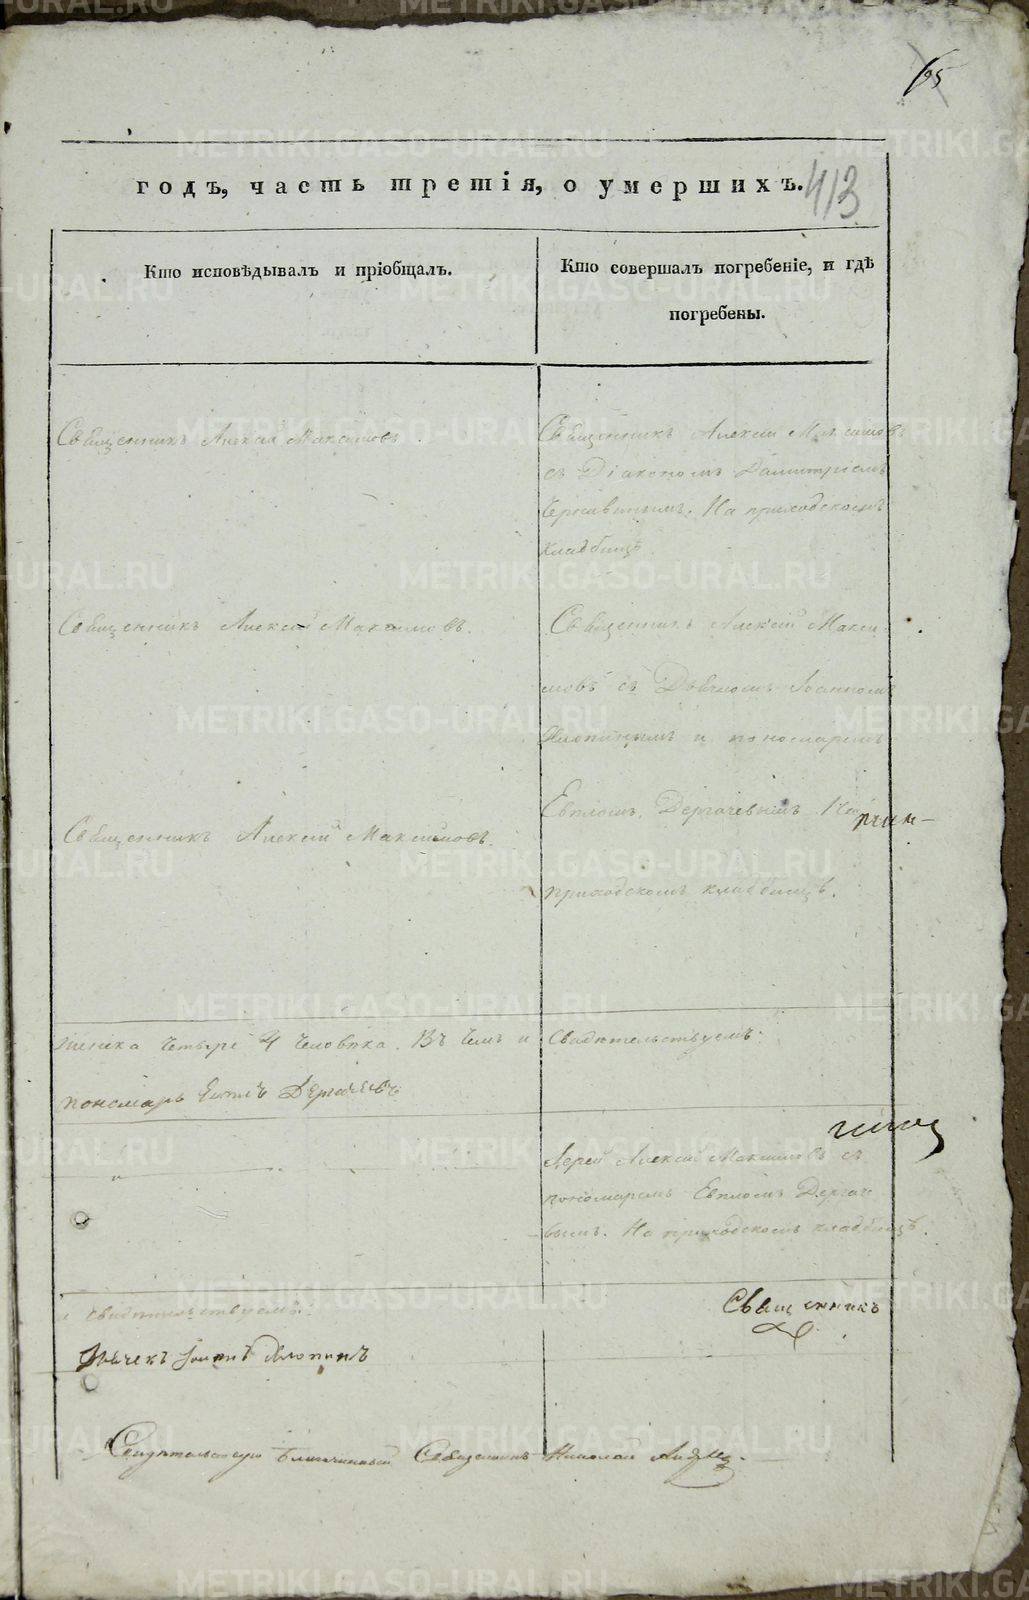 65
413
годъ, часть третія, о умершихъ.
Кто исповѣдывалъ и пріобщалъ.
Кто совершалъ погребеніе, и гдѣ
погребены.
Священникъ Алексій Максимовъ.
Священникъ Алексій Максимовъ
съ Діакономъ Димитріемъ
На приходскомъ
кладбищѣ
Священникъ Алексій Максимовъ.
Священникъ Алексій Макси
мовъ съ Дьячкомъ Іоанномъ
и пономаремъ
Евпломъ Дергачевымъ На
приходскомъ кладбищѣ.
Священникъ Алексій Максимовъ.
Четыре 4 человѣка. Въ чемъ и
Свидѣтельствуемъ.
пономарь Евплъ Дергачевъ
Іерей Алексій Максимовъ съ
пономаремъ Евпломъ Дергаче
вымъ. На приходскомъ кладбищѣ.
свидѣтельствуемъ.
Священникъ
Дьячекъ Іоаннъ
Свидѣтельствую Благочинный Священникъ Николай
METRIKI.GASO-URAL.RU